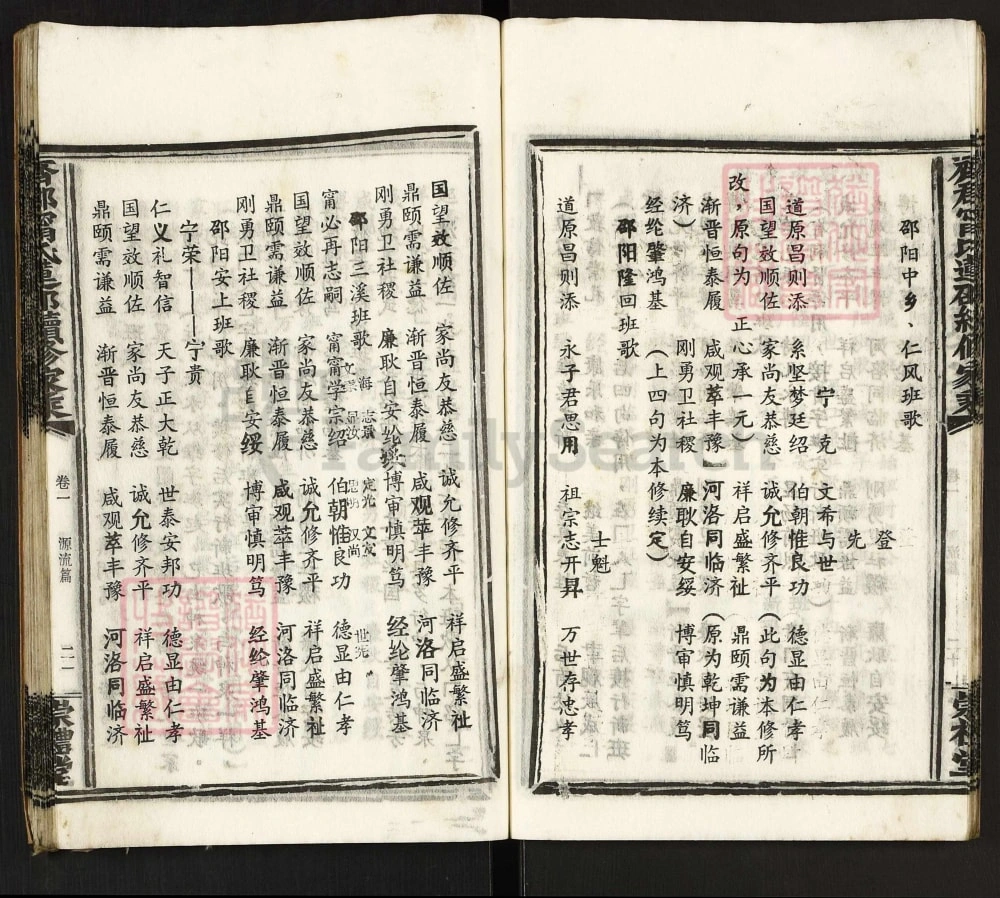 邵阳中乡、仁风班歌
登
宁　克　　先
道原昌则添　系坚梦廷绍　文希与世　伯朝惟良功　德显由仁孝
国望效顺佐　家尚友恭慈　诚允修齐平（此句为本修所
改，原句为　正心承一元）　祥启盛繁祉　鼎颐需谦益
渐晋恒泰履　咸观萃丰豫　河洛同临济（原为乾坤同临
济）　刚勇卫社稷　廉耿自安绥　博审慎明笃
经纶肇鸿基　（上四句为本修续定）
邵阳隆回班歌
士魁
道原昌则添　永子君思用　祖宗志开昇　万世存忠孝
国望效顺佐　家尚友恭慈　诚允修齐平　祥启盛繁祉
鼎颐需谦益　渐晋恒泰履　咸观萃丰豫　河洛同临济
刚勇卫社稷　廉耿自安绥　博审慎明笃　经纶肇鸿基
邵阳三溪班歌
海　志　定光　文　汉尚　世
甯必再志嗣　甯甯学宗绍　伯朝惟良功　德显由仁孝
国望效顺佐　家尚友恭慈　诚允修齐平　祥启盛繁祉
鼎颐需谦益　渐晋恒泰履　咸观萃丰豫　河洛同临济
刚勇卫社稷　廉耿自安绥　博审慎明笃　经纶肇鸿基
邵阳安上班歌
宁荣———宁贵
仁义礼智信　天子正大乾　世泰安邦功　德显由仁孝
国望效顺佐　家尚友恭慈　诚允修齐平　祥启盛繁祉
鼎颐需谦益　渐晋恒泰履　咸观萃丰豫　河洛同临济
卷一　源流篇　二一
崇禮堂
FamilySearch